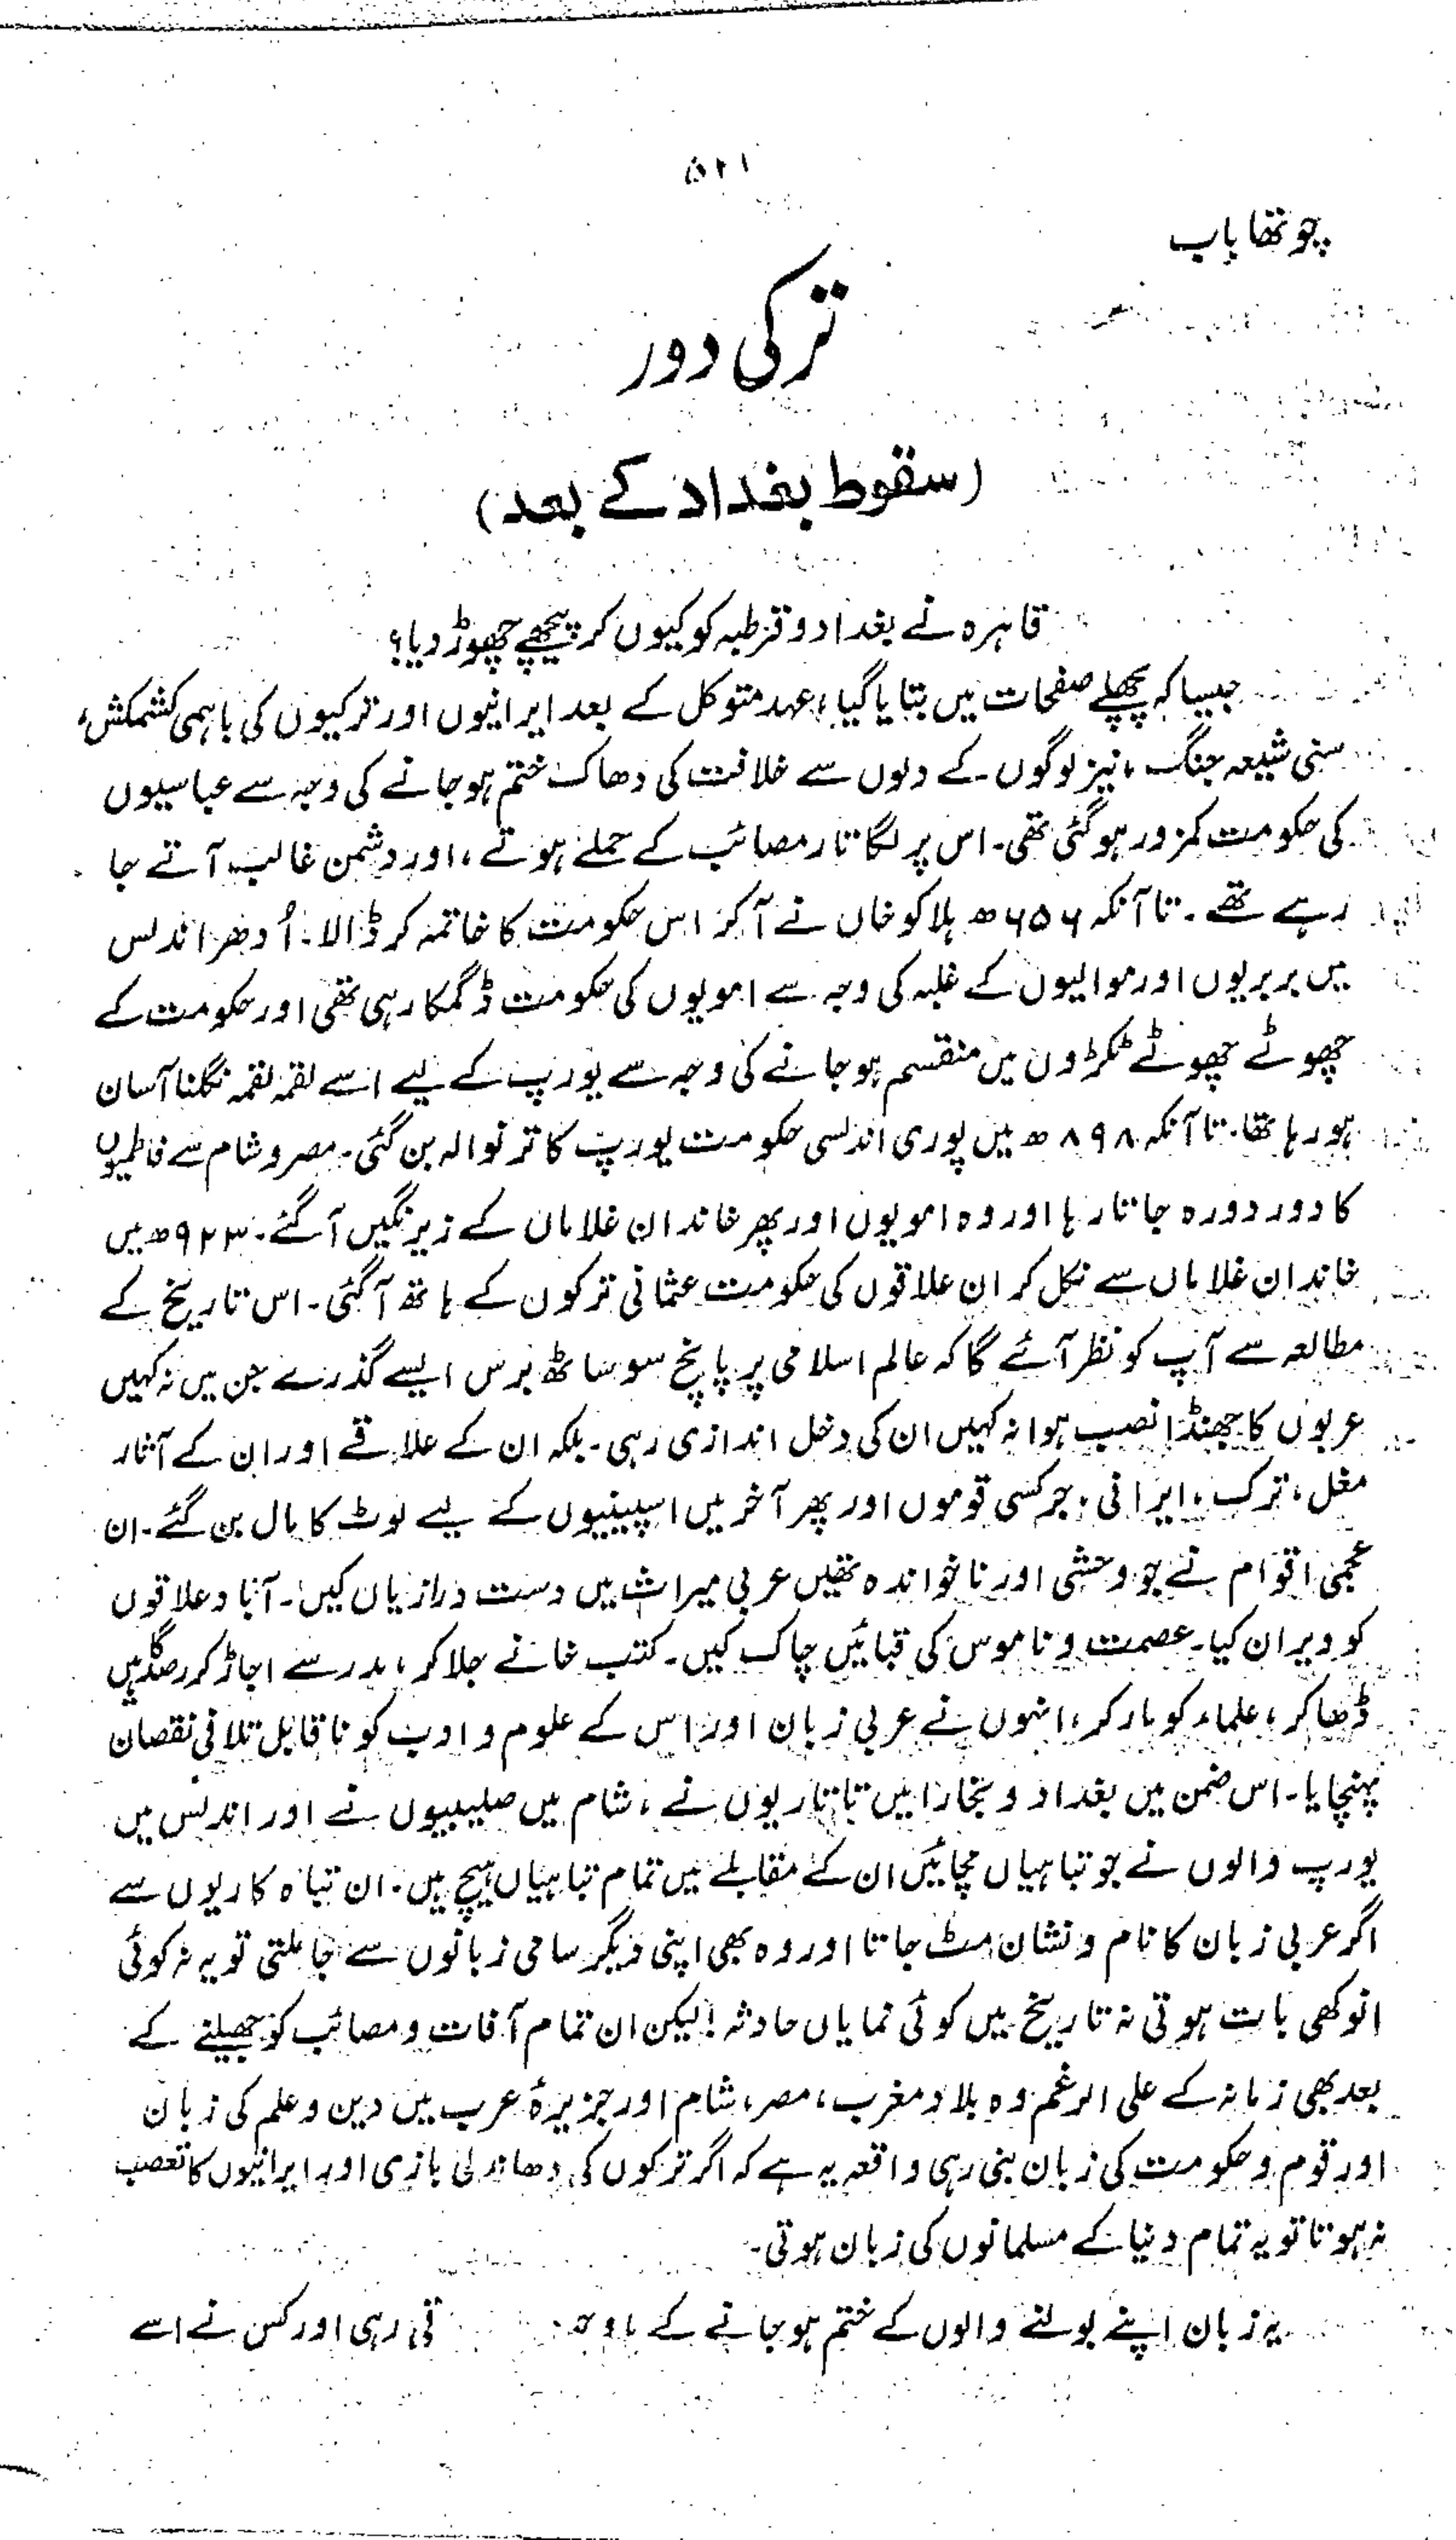 ۵۲۱
چوتھا باب
ترکی دور
(سقوط بغداد کے بعد)
قاہرہ نے بغداد و قرطبہ کو کیوں کر پیچھے چھوڑ دیا؟
جیسا کہ پچھلے صفحات میں بتایا گیا، عہد متوکل کے بعد ایرانیوں اور ترکیوں کی باہمی کشمکش،
سنی شیعہ جنگ، نیز لوگوں کے دلوں سے خلافت کی دھاک ختم ہو جانے کی وجہ سے عباسیوں
کی حکومت کمزور ہو گئی تھی۔ اس پر لگا تار مصائب کے حملے ہوتے، اور دشمن غالب آتے جا
رہے تھے۔ تا آنکہ ۶۵۶ھ ہلاکو خاں نے آ کر اس حکومت کا خاتمہ کر ڈالا۔ اُدھر اندلس
میں بربریوں اور موالیوں کے غلبہ کی وجہ سے امویوں کی حکومت ڈگمگا رہی تھی اور حکومت کے
چھوٹے چھوٹے ٹکڑوں میں منقسم ہو جانے کی وجہ سے یورپ کے لیے اسے لقمہ لقمہ نگلنا آسان
ہو رہا تھا۔ تا آنکہ ۸۹۸ھ میں پوری اندلسی حکومت یورپ کا تر نوالہ بن گئی۔ مصر و شام سے فاطمیوں
کا دور دورہ جاتا رہا اور وہ امویوں اور پھر خاندان غلاماں کے زیر نگیں آ گئے۔ ۹۲۳ھ میں
خاندان غلاماں سے نکل کر ان علاقوں کی حکومت عثمانی ترکوں کے ہاتھ آ گئی۔ اس تاریخ کے
مطالعہ سے آپ کو نظر آئے گا کہ عالم اسلامی پر پانچ سو ساٹھ برس ایسے گذرے جن میں نہ کہیں
عربوں کا جھنڈا نصب ہوا نہ کہیں ان کی دخل اندازی رہی۔ بلکہ ان کے علاقے اور ان کے آثار
مغل، ترک، ایرانی، جرکسی قوموں اور پھر آخر میں اسپینیوں کے لیے لوٹ کا مال بن گئے۔ ان
عجمی اقوام نے جو وحشی اور ناخواندہ تھیں عربی میراث میں دست درازیاں کیں۔ آباد علاقوں
کو ویران کیا۔ عصمت و ناموس کی قبائیں چاک کیں۔ کتب خانے جلا کر، مدرسے اجاڑ کر رصدگاہیں
ڈھا کر، علماء کو مار کر، انہوں نے عربی زبان اور اس کے علوم و ادب کو ناقابل تلافی نقصان
پہنچایا۔ اس ضمن میں بغداد و بخارا میں تاتاریوں نے، شام میں صلیبیوں نے اور اندلس میں
یورپ والوں نے جو تباہیاں مچائیں ان کے مقابلے میں تمام تباہیاں ہیچ ہیں۔ ان تباہ کاریوں سے
اگر عربی زبان کا نام و نشان مٹ جاتا اور وہ بھی اپنی دیگر سامی زبانوں سے جا ملتی تو یہ نہ کوئی
انوکھی بات ہوتی نہ تاریخ میں کوئی نمایاں حادثہ! لیکن ان تمام آفات و مصائب کو جھیلنے کے
بعد بھی زمانہ کے علی الرغم وہ بلاد مغرب، مصر، شام اور جزیرۂ عرب میں دین و علم کی زبان
اور قوم و حکومت کی زبان بنی رہی واقعہ یہ ہے کہ اگر ترکوں کی دھاندلی بازی اور ایرانیوں کا تعصب
نہ ہوتا تو یہ تمام دنیا کے مسلمانوں کی زبان ہوتی۔
یہ زبان اپنے بولنے والوں کے ختم ہو جانے کے رہی اور کس نے اسے